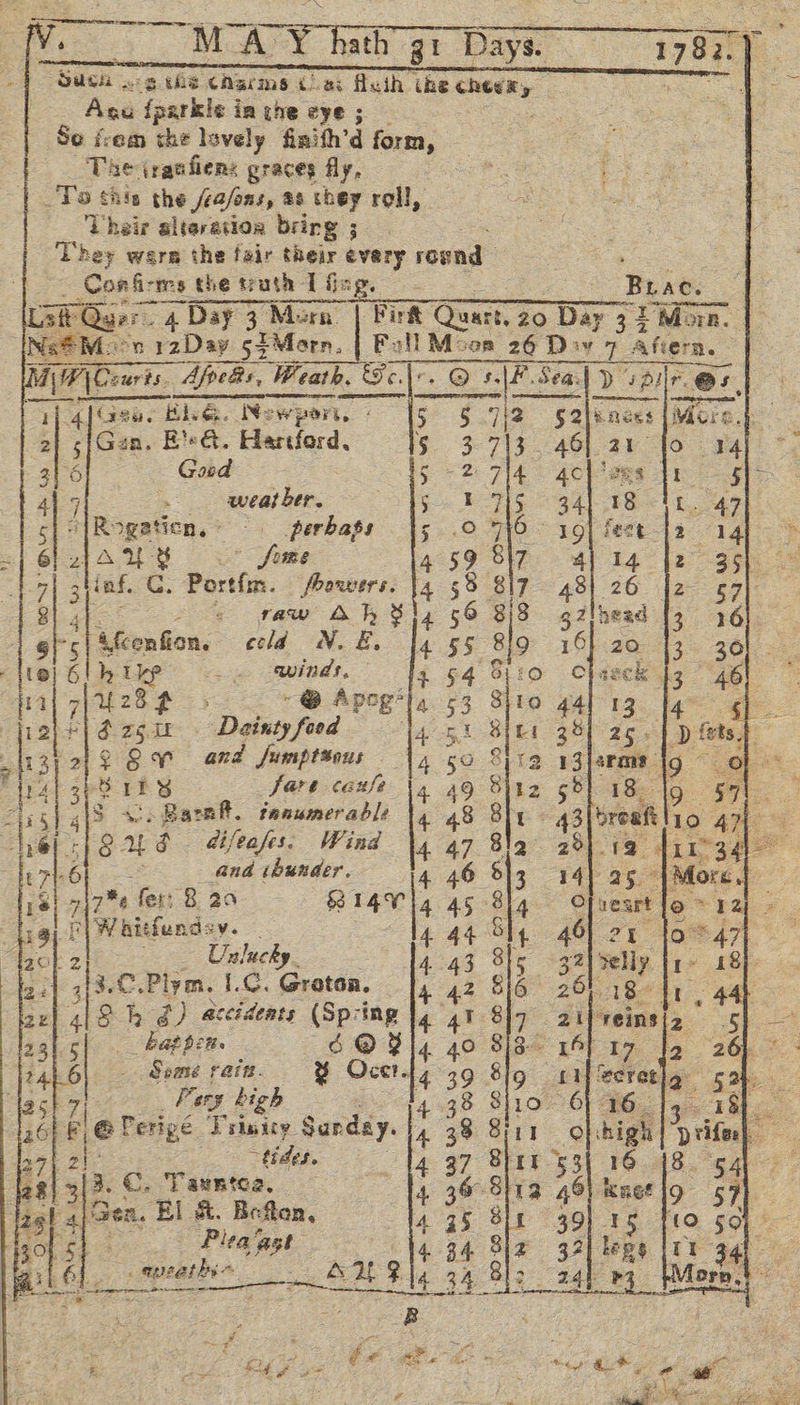 IV. MAY hath 31 Days. 1782.
Such the charms that flush the cheek,
And ſparkle in the eye ;
So from the lovely finiſh'd form,
The tranſient graces fly.
To this the ſeaſons, as they roll,
Their alteration bring ;
They warn the fair their every round
Confirms the truth I ſing. BLAC.
Laſt Quar. 4 Day 3 Morn. | Firſt Quart. 20 Day 3 ½ Morn.
New Moon 12 Day 5 ½ Morn. | Full Moon 26 Day 7 Aftern.
M|W|Courts, Aſpects, Weath. &c.|r. ☉ s.|F. Sea.|☽ 's pl|r. ☽ s.
1 4 Gen. El. &. Newport. 5 5 7 2 52 knees More.
2 5 Gen. El. &. Hartford. 5 3 7 3 46 21 0 14
3 6 Good 5 2 7 4 40 legs 1 5
4 7 weather. 5 1 7 5 34 18 1 47
5 Rogation. perhaps 5 0 7 6 19 feet 2 14
6 2 △ ♃ ☿ ſome 4 59 8 7 4 14 2 35
7 3 inf. C. Portſm. ſhowers. 4 58 8 7 48 26 2 57
8 4 raw △ ♄ ☿ 4 56 8 8 32 head 3 16
9 5 Aſcenſion. cold N. E. 4 55 8 9 16 20 3 30
10 6 winds. 4 54 8 10 0 neck 3 46
11 7 @ Apogee 4 53 8 10 44 13 4 5
12 Dainty food 4 51 8 11 28 25 ☽ ſets.
13 2 and ſumptuous 4 50 8 12 13 arms 9 0
14 3 fare cauſe 4 49 8 12 58 18 9 57
15 4 S. C. Barnſt. innumerable 4 48 8 1 43 breaſt 10 47
16 5 diſeaſes. Wind 4 47 8 2 28 12 11 34
17 6 and thunder. 4 46 8 3 14 25 More.
18 7 7*s ſet: 8 20 ☊ 14 ♈ 4 45 8 4 0 heart 0 12
19 F Whitſunday. 4 44 8 4 46 21 0 47
20 2 Unlucky 4 43 8 5 32 belly 1 18
21 3 S.C. Plym. I.C. Groton. 4 42 8 6 26 18 1 44
22 4 □ ♄ ♂) accidents (Spring 4 41 8 7 21 reins 2 5
23 5 happen. ☌ ☉ ☿ 4 40 8 8 16 17 2 26
24 6 Some rain. ☿ Occi. 4 39 8 9 11 ſecrets 2 52
25 7 Very high 4 38 8 10 6 16 3 18
26 F @ Perigé Trinity Sunday. 4 38 8 11 0 thigh ☽ riſes
27 2 tides. 4 37 8 11 53 16 8 54
28 3 S. C. Taunton. 4 36 8 12 46 knees 9 57
29 4 Gen. El &. Boſton. 4 35 8 1 39 15 10 50
30 5 Pleaſant 4 34 8 2 32 legs 11 34
31 6 weather △ ♃ ♀ 4 34 8 3 24 13 Morn.
B